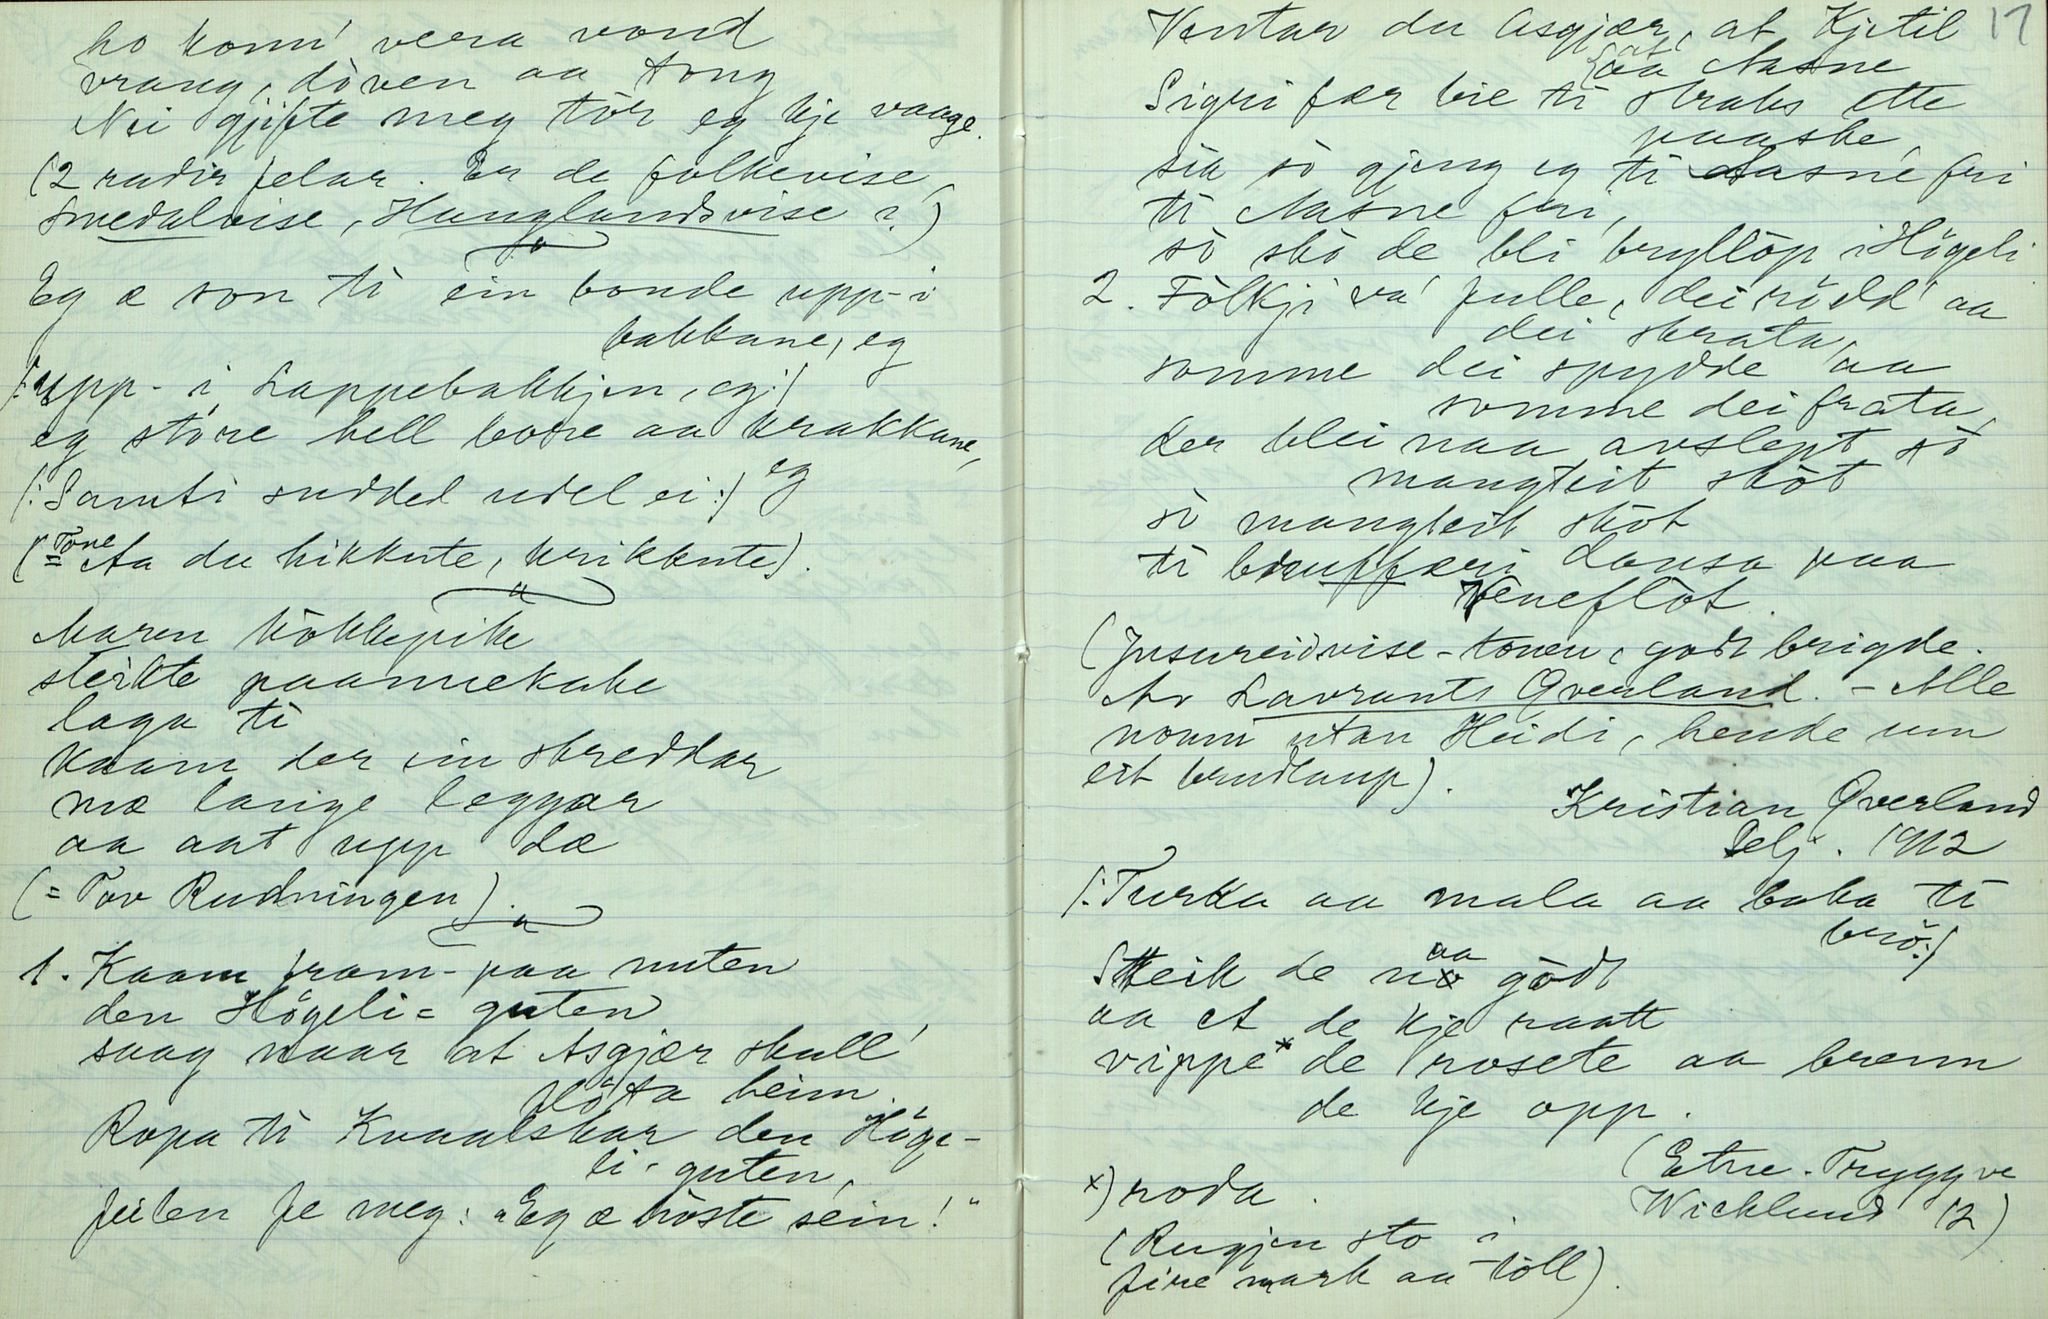 ho konn' vera vond
vrang, döven aa tong
Nei gjifte meg tör eg kje vaage.
(2 radir felar. Er de folkevise
Smedalvise, Hanglandsvise?)
Eg æ son ti ein bonde upp-i
bakkane, eg
/: upp-i Lappebakkjen, eg :/
eg störe hell bore aa krakkane,
eg
(: Samti suddel udel ei :)
(= Tone Aa du hikkute, krikkute).
Maren kökkepike
steikte paannekake
laga ti
kaam der ein skreddar
mæ lange leggar
aa aat upp dæ
(= Tov Rudningen).
1. Kaam fram-paa nuten
den Högeli=guten
saag naar at Asgjær skull'
flöta heim.
Ropa ti Kvaalskar den Höge-
li-guten,
feilen fe meg: "Eg æ höste sein!"
17
Ventar du Asgjær, at Kjetil
aa Aasne
Sigri fær bie ti straks ette
paaske,
sia sö gjeng eg ti Aasne fri
ti Aasne fri,
sö skö de bli bryllöp i Högeli
2. Fölkji va' fulle, dei rödd' aa
dei skrata,
somme dei spydde aa
somme dei frata,
der blei naa avslept sö
mangteit sköt
sö mangteit sköt
ti bruffæri dansa paa
Veneflöt.
(Jusureidvise-tonen, godt brigde.
Av Lavrants Øverland. - Alle
nomni utan Heidi, hende um
eit brudlaup).
Kristian Øverland
Selj. 1912
/: Turka aa mala aa baka ti
brö :/
Steik de naa gödt
aa et de kje raatt
vippe* de rosete aa brenn
de kje opp.
(Etne. Tryggve
Wicklund 12)
x) roda.
(Rugjen sto i
fire mark aa töll).